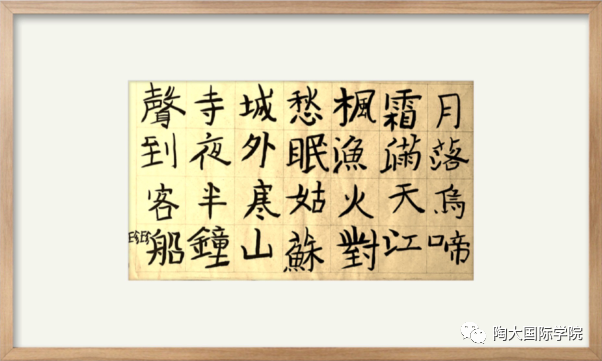 月落烏啼
霜滿天江
楓漁火對
愁眠姑蘇
城外寒山
寺夜半鐘
聲到客船
陶大国际学院